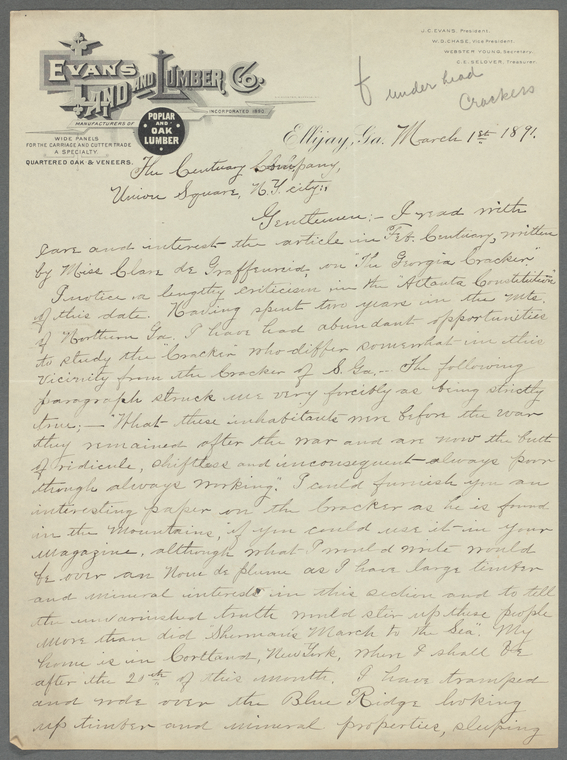 J. C. EVANS, President.
W. B. CHASE, Vice President.
WEBSTER YOUNG, Secretary.
C. E. SELOVER, Treasurer.
EVANS
LAND AND LUMBER CO.
INCORPORATED 1890.
MANUFACTURERS OF
POPLAR
AND
OAK
LUMBER
WIDE PANELS
FOR THE CARRIAGE AND CUTTER TRADE
A SPECIALTY.
QUARTERED OAK & VENEERS.
under head
Crackers
Ellijay, Ga. March 1st 1891.
The Century Company,
Union Square, N.Y. city:,
Gentlemen:- I read with
care and interest the article in Feb. Century, written
by Miss Clare de Graffenreid, on "The Georgia Cracker"
I notice a lengthy criticism in the "Atlanta Constitution"
of this date. Having spent two years in the Mts.
of Northern Ga. I have had abundant opportunities
to study the "Cracker" who differ somewhat in this
vicinity from the Cracker of S. Ga.,- The following
paragraph struck me very forcibly as being strictly
true:- "What these inhabitants were before the war
they remained after the war and are now the butt
of ridicule, shiftless and inconsequent - always poor
though always working." I could furnish you an
interesting paper on the Cracker as he is found
in the Mountains, if you could use it in your
Magazine, although what I would write would
be over an Nom de plume as I have large timber
and mineral interests in this section and to tell
the unvarnished truth would stir up these people
more than did Sherman's "March to the Sea". My
home is in Cortland, New York, when I shall be
after the 20th of this month. I have tramped
and rode over the Blue Ridge looking
up timber and mineral properties, sleeping